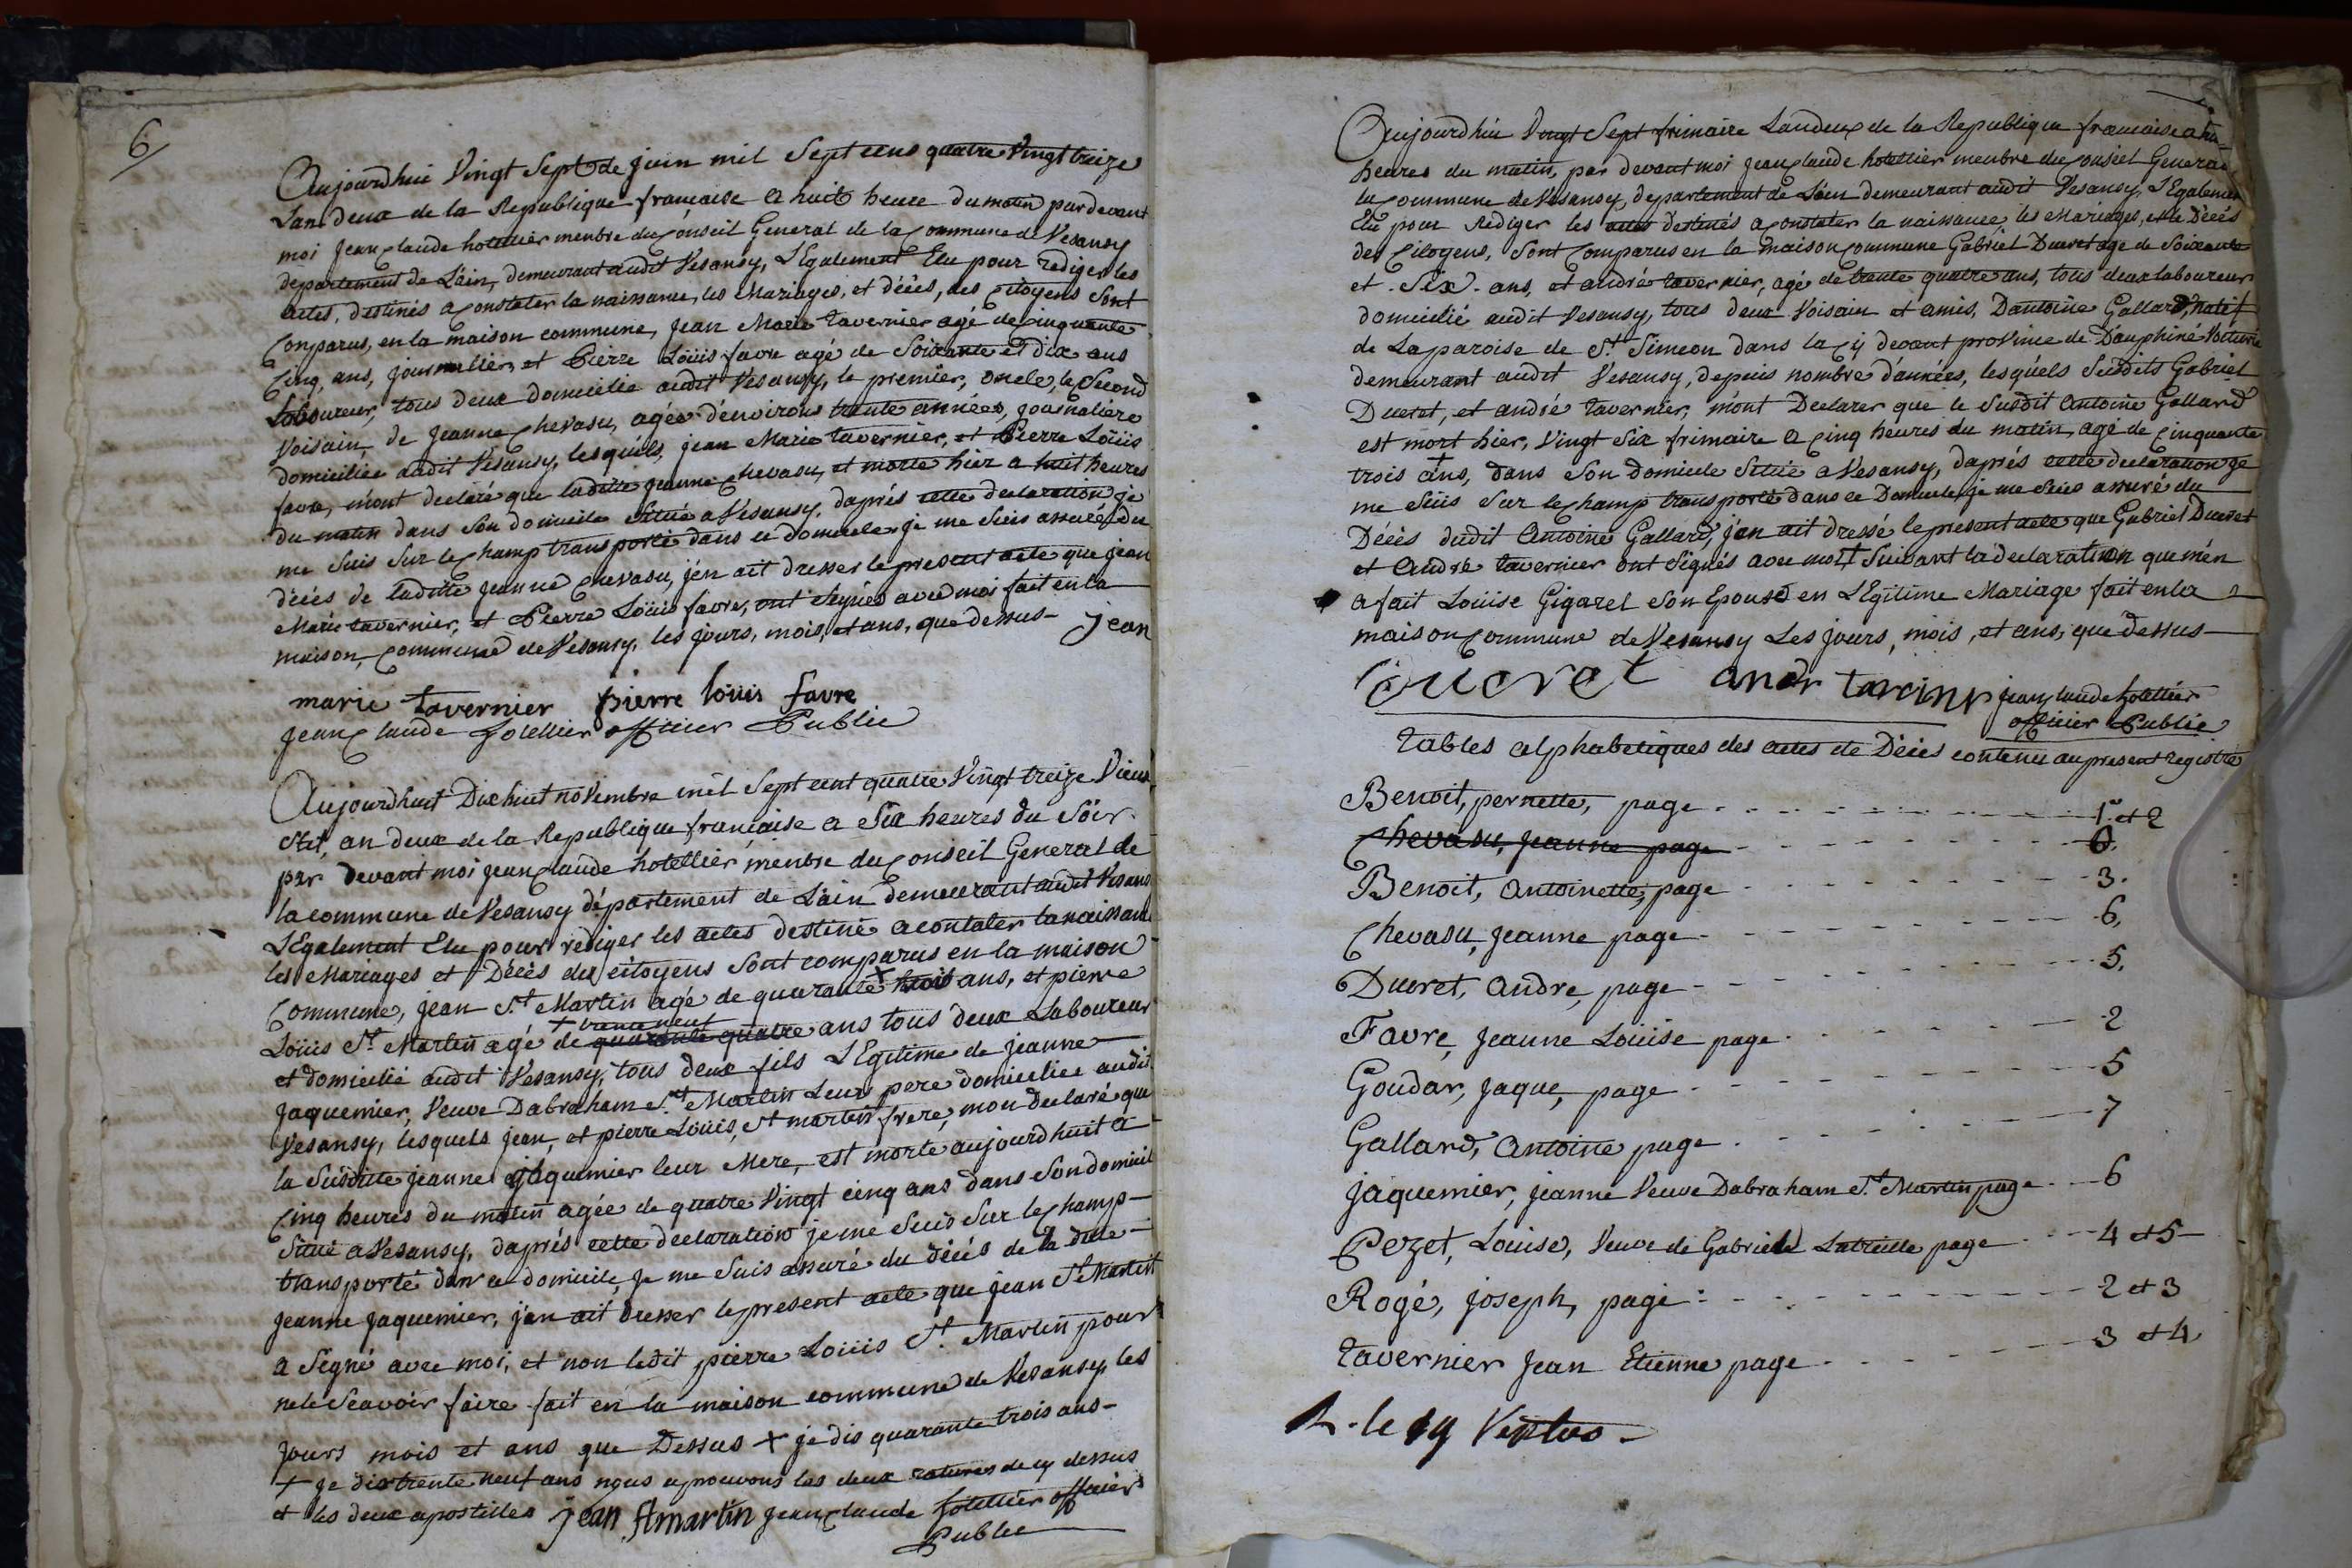 6
Aujourdhuie Vingt Sept de juin mil Sept cens quatre Vingt treize
L'an deux de la Republique francaise a huit heure du matin par devant
moi jean Claude hotellier menbre du Conseil General de la Commune de Vesansy
departement de L'ain, demeurant audit Vesansy, L'Egalement Elu pour rediger les
actes, destinés a Constater la naissance, les Mariages, et décès, des Citoyens Sont
Comparus, en la maison commune, Jean Marie tavernier agé de Cinquante
Cinq ans, journallier, et Pierre Loüis favre agé de Soixante et dix ans
laboureur, tous deux domicilié audit Vesansy, le premier, oncle, le Second
Voisain, de Jeanne Chevasu, agée d'environs trente années, journaliere
domiciliée audit Vesansy, lesquels, jean Marie tavernier, et Pierre Loüis
favre, m'ont declaré que ladite jeanne Chevasu, et morte hier a huit heures
du matin dans Son domicile Situé a Vesansy, daprés cette declaration je
me Suis Sur le Champ transporté dans ce domicile, je me Suis assuré du
décés de ladite Jeanne Chevasu, j'en ait dresser le present acte que jean
Marie tavernier, et Pierre Loüis favre, ont Signés avec moi fait en la
maison, Commune de Vesansy, les jours, mois, et ans, que dessus- jean
marie tavernier pierre loüis favre
jean Claude hotellier officier Public
Aujourdhuit Dix huit novembre mil Sept cent quatre Vingt treize Vieux
Stil, an deux de la Republique francaise a Six heures du Soir
par devant moi jean Claude hotellier, menbre du Conseil General de
la commune de Vesansy département de L'ain demeurant audit Vesansy
L'Egalement Elu pour rediger les actes destiné a contater la naissance
les Mariages et Décès des citoyens Sont comparus en la maison
Commune, jean St Martin agé de quarante + trois ans, et pierre
+ trente neuf
Loüis St Martin agé de quarante quatre ans tous deux Laboureur
et domicilié audit Vesansy, tous deux fils L'Egitime de jeanne
Jaquemier, Veuve Dabraham St Martin Leur pere domiciliée audit
Vesansy, lesquels jean, et pierre Loüis, St martin frere, mon declaré que
la Susdite jeanne jaquemier leur Mere, est morte aujourdhuit a
Cinq heures du matin agée de quatre Vingt cinq ans dans Son domicil
Situé a Vesansy, daprés cette declaration je me Suis Sur le Champ-
transporté dans ce domicile, je me Suis assuré du décés de la dite-
Jeanne Jaquemier, j'an ait dresser le present acte que jean St Martin
a Signé avec moi, et non ledit pierre Loüis St Martin pour
ne le Scavoir faire fait en la maison commune de Vesansy les
jours mois et ans que Dessus + je dis quarante trois ans-
+ Je dis trente neuf ans nous aprouvons les deux ratures de cy dessus
et les deux apostilles jean stmartin jean Claude hotellier officier
Public
Aujourdhui Vingt Sept frimaire L'andeux de la Republique francaise a
heures du matin, par devant moi Jean Claude hotellier menbre du Conseil General
la Commune de Vesansy, departement de L'ain demeurant audit Vesansy, L'Egalement
Elu pour Rediger les actes destinés a Constater la naissance, les Mariages, et le Décès
des Citoyens, Sont Comparus en la maison commune Gabriel Ducret agé de Soixante
et Six ans, et andré tavernier, agé de trente quatre ans, tous deux laboureur
domicilié audit Vesansy, tous deux Voisain et amis, D'antoine Gallard, natif
de La paroise de St Simeon dans la Cy devant province de Dauphiné Voiturié
demeurant audit Vesansy, depuis nombre d'années, lesquels Susdits Gabriel
Ducret, et andré tavernier, m'ont Declarer que le Susdit Antoine Gallard
est mort hier, Vingt Six frimaire a Cinq heures du matin, agé de Cinquante
trois ans, dans Son domicile Situé a Vesansy, daprés cette declaration je
me Suis Sur le Champ transporté dans ce Domicile, je me Suis assuré du
Décès dudit Antoine Gallard, j'en ait dressé le present acte que Gabriel Ducret
et André tavernier ont Signés avec moi + Suivant la declaration que m'en
a fait Loüise Gigarel Son Epouse en L'Egitime Mariage fait en la
maison Commune de Vesansy Les jours, mois, et ans, que dessus-
Ducret andr
jean Claude hotellier
officier Public
Tables alphabetiques des actes de Décès contenu au present registre
Benoit, pernette, page 1er et 2
Chevasu, Jeanne page 6.
Benoit, Antoinette, page 3.
Chevasu, Jeanne page 6,
Ducret, Andre, page 5.
Favre, Jeanne Loüise page 2
Goudar, Jaque, page 5
Gallard, Antoine page 7
jaquemier, jeanne Veuve Dabraham St Martin page 6
Pezet, Louise, Veuve de Gabriel page 4 et 5
Rogé, joseph, page 2 et 3
tavernier Jean Etienne page 3 et 4